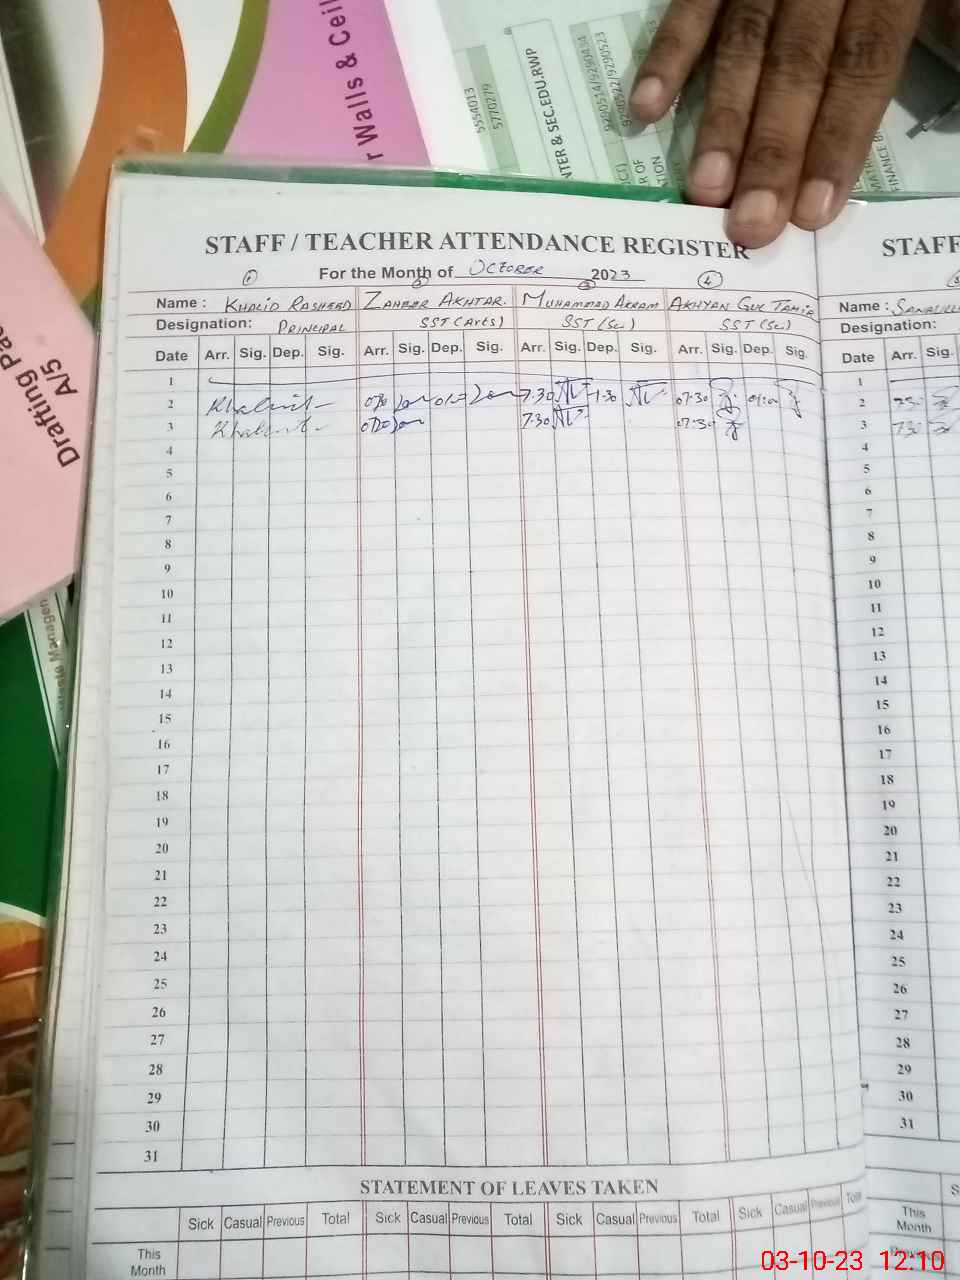 r Walls & Ceil
5554013
5770279
NTER & SEC.EDU.RWP
9290514/9290494
9290522/9290523
Drafting Pa
A/5
STAFF / TEACHER ATTENDANCE REGISTER
For the Month of OCTOBER 2023
1 2 3 4
Name : KHALID RASHEED ZAHEER AKHTAR. MUHAMMAD AKRAM AKHYAN GUL TAHIR
Designation: PRINCIPAL SST (Arts) SST (Sc.) SST (Sc)
Date Arr. Sig. Dep. Sig. Arr. Sig. Dep. Sig. Arr. Sig. Dep. Sig. Arr. Sig. Dep. Sig.
1
2 7.30 1.30 07.30
3 7.30 07.30
4
5
6
7
8
9
10
11
12
13
14
15
16
17
18
19
20
21
22
23
24
25
26
27
28
29
30
31
STATEMENT OF LEAVES TAKEN
Sick Casual Previous Total Sick Casual Previous Total Sick Casual Previous Total Sick Casual Previous Total
This
Month
STAFF
Name :
Designation:
Date Arr. Sig.
1
2
3
4
5
6
7
8
9
10
11
12
13
14
15
16
17
18
19
20
21
22
23
24
25
26
27
28
29
30
31
S
This
Month
Previous
03-10-23 12:10